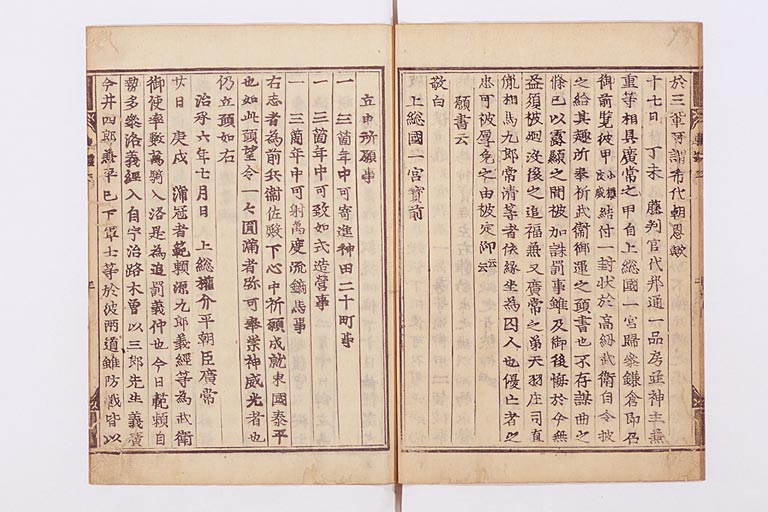 於三軍可謂希代朝恩歟
十七日 丁未 藤判官代邦通一品房并神主兼
重等相具廣常之甲自上総國一宮歸参鎌倉即召
御前覽彼甲小櫻皮威結付一封状於高紐武衛自令披
之給其趣所奉祈武衛御運之願書也不存謀曲之
條已以露顕之間被加誅罰事雖及御後悔於今無
益須被廻没後之追福兼又廣常之弟天羽庄司直
胤相馬九郎常清等者依縁坐為囚人也優亡者之
忠可被厚免之由被定仰云云
願書云
敬白
上総國一宮寳前
立申所願事
一 三箇年中可寄進神田二十町事
一 三箇年中可致如式造營事
一 三箇年中可射萬度流鏑馬事
右志者為前兵衛佐殿下心中祈願成就東國泰平
也如此願望令一々圓滿者弥可奉崇神威光者也
仍立願如右
治承六年七月日 上総權介平朝臣廣常
廿日 庚戌 蒲冠者範頼源九郎義經等為武衛
御使率數萬騎入洛是為追罰義仲也今日範頼自
勢多参洛義經入自宇治路木曽以三郎先生義廣
今井四郎兼平已下軍士等於彼兩道雖防戦皆以